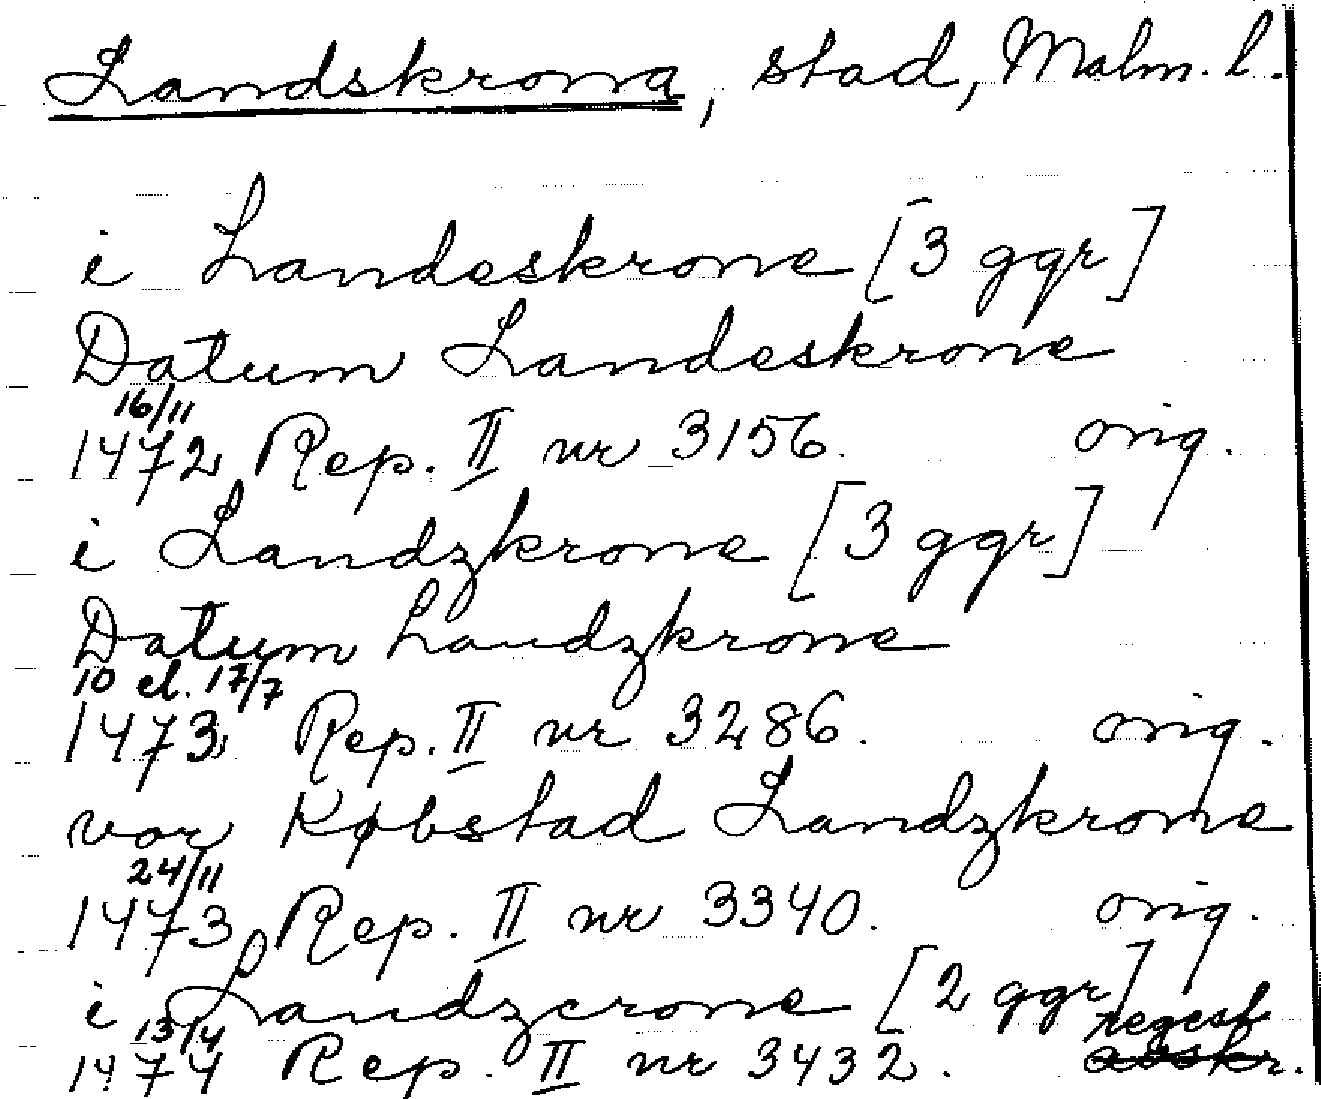 Landskrona, stad, Malm. l.
i Landeskrone [3 ggr]
Datum Landeskrone
16/11
1472 Rep. II nr 3156. orig.
i Landzkrone [3 ggr]
Datum Landzkrone
10 el. 17/7
1473 Rep. II nr 3286. orig.
vor Købstad Landzkrone
24/11
1473 Rep. II nr 3340. orig.
i Landzcrone [2 ggr]
13/4 regest
1474 Rep. II nr 3432. avskr.